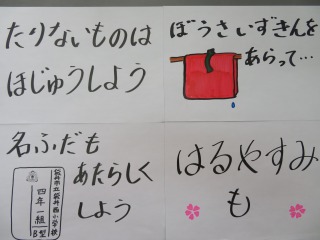 たりないものは
ほじゅうしよう
ぼうさいずきんを
あらって…
名ふだも
あたらしく
しよう
四年一組
B型
はるやすみ
も